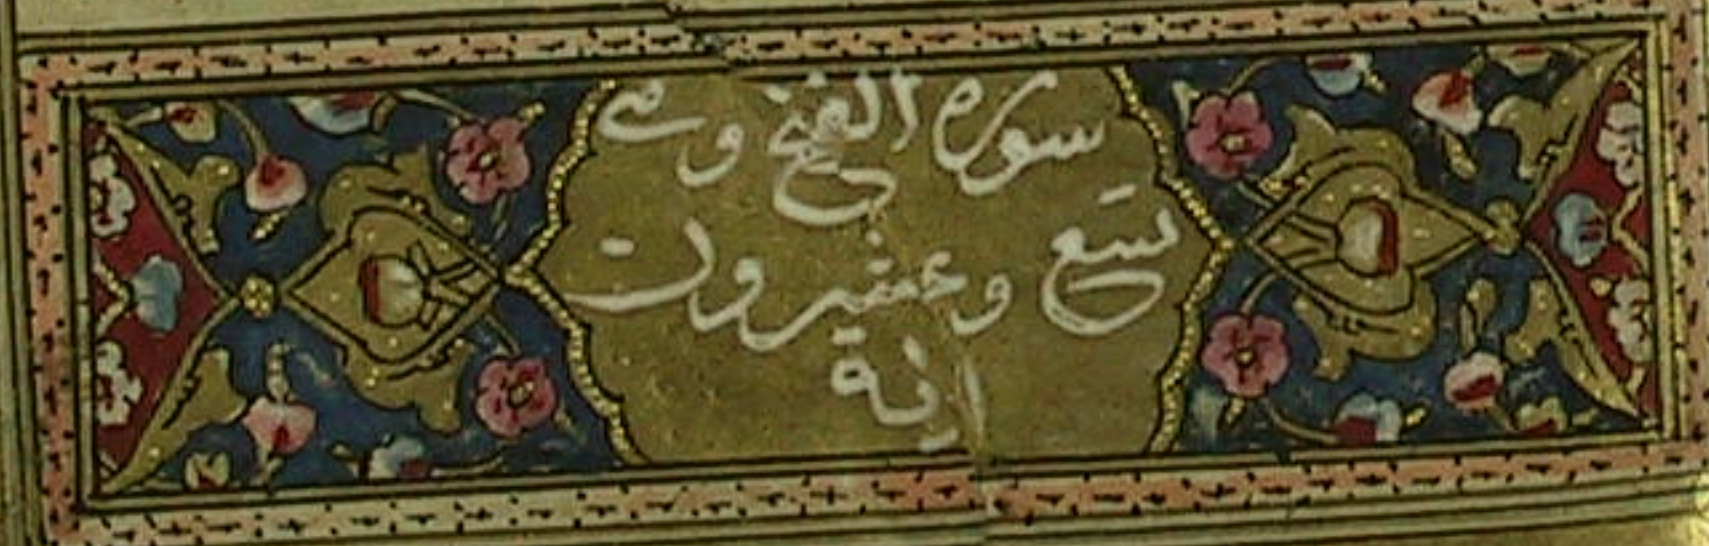 سورة الفتح وهي
تسع وعشرون
اية